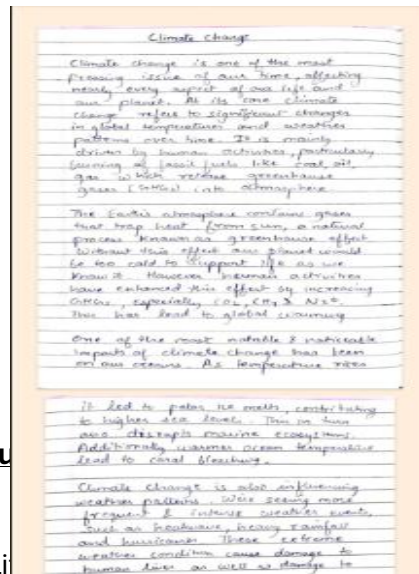 Climate change
Climate change is one of the most
pressing issue of our time, affecting
nearly every aspect of our life and
our planet. At its core climate
change refers to significant changes
in global temperatures and weather
patterns over time. It is mainly
driven by human activities, particularly
burning of fossil fuels like coal, oil,
gas which release greenhouse
gases (GHGs) into atmosphere
The Earth's atmosphere contains gases
that trap heat from sun, a natural
process known as greenhouse effect
Without this effect our planet would
be too cold to support life as we
know it. However human activities
have enhanced this effect by increasing
GHGs, especially CO2, CH4 &
This has lead to global warming
One of the most notable & noticeable
impacts of climate change has been
on our oceans. As temperature rises
it led to polar ice melts, contributing
to higher sea levels. This in turn
also disrupts marine ecosystems.
Additionally warmer ocean temperature
lead to coral bleaching.
Climate change is also influencing
weather patterns. We're seeing more
frequent & intense weather events,
such as heatwave, heavy rainfall
and hurricanes. These extreme
weather condition cause damage to
human lives as well as damage to